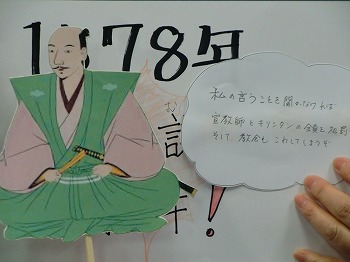 1578年
私の言うことを聞かなければ
宣教師とキリシタンの
そして、教会もこわしてしまうぞ
む
言
！